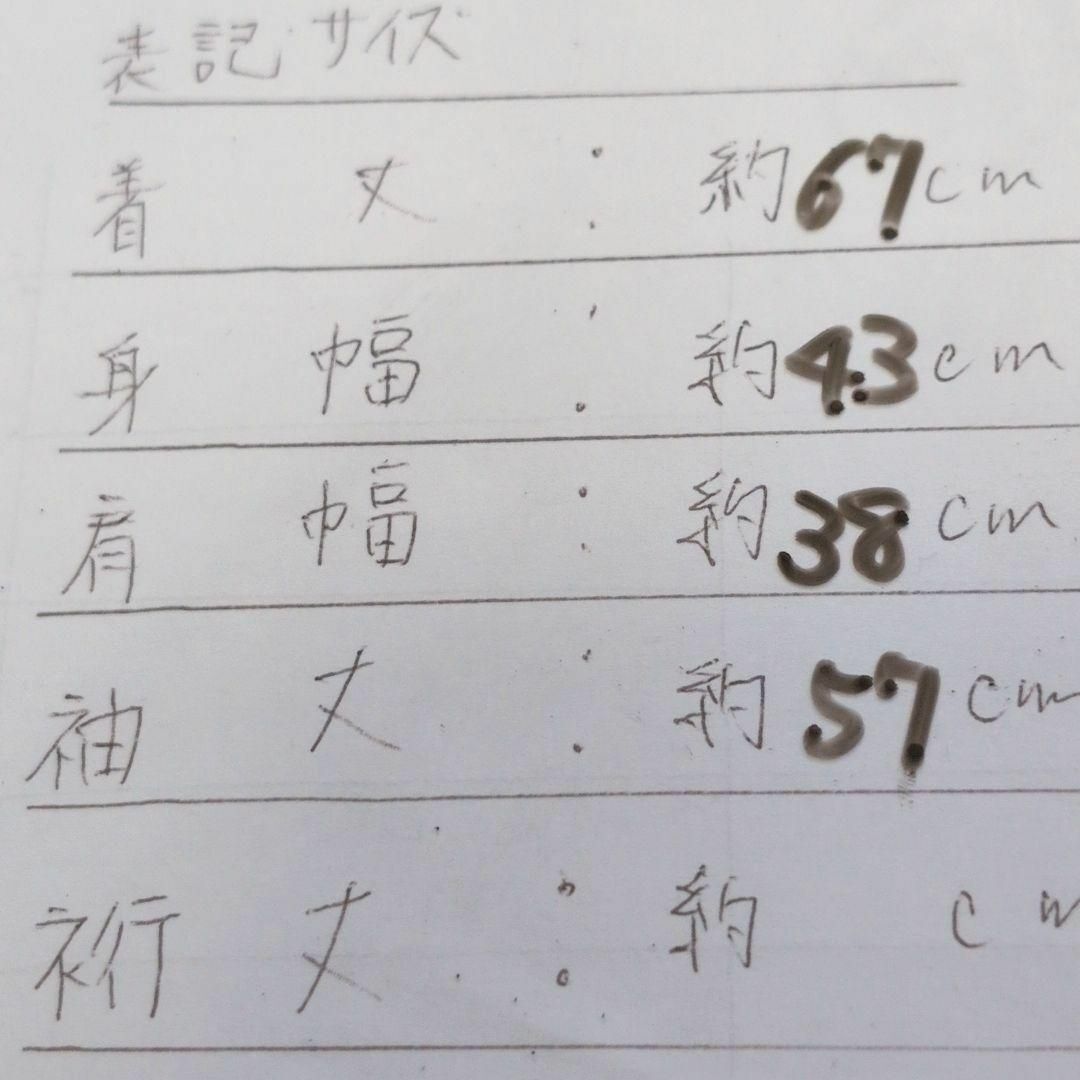 表記サイズ
着丈：約67cm
身幅：約43cm
肩幅：約38cm
袖丈：約57cm
裄丈：約 cm